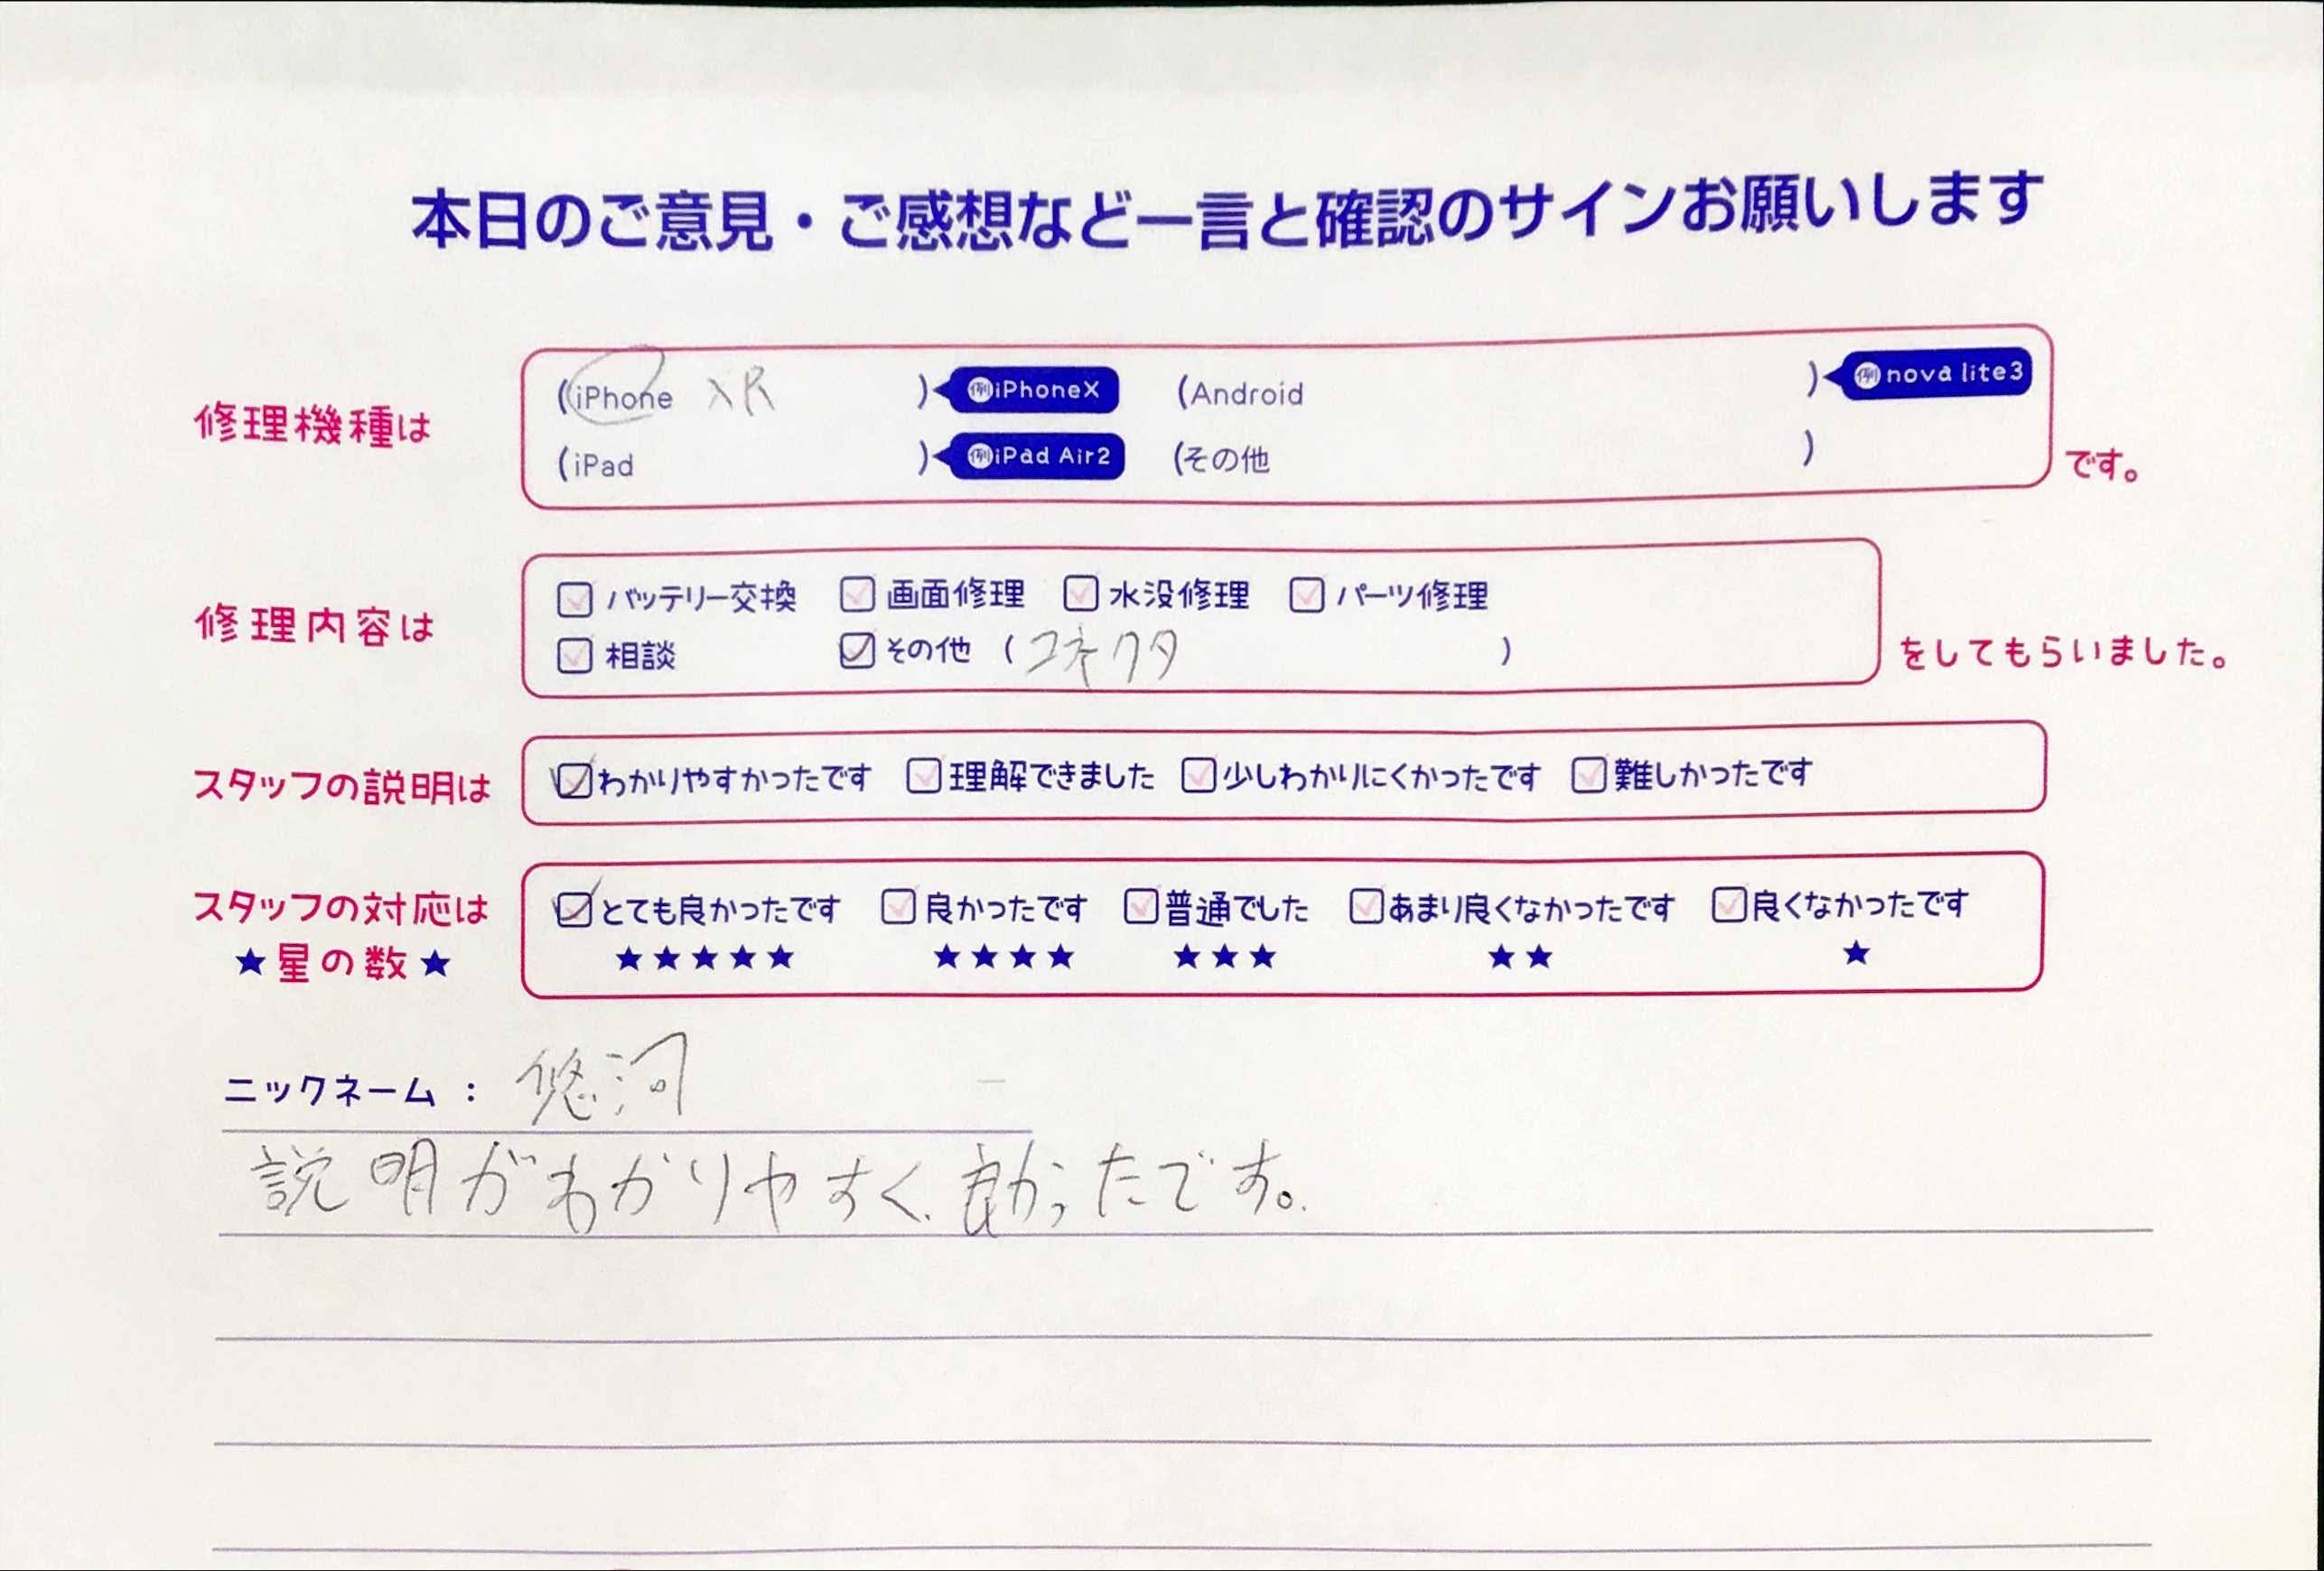 本日のご意見・ご感想など一言と確認のサインお願いします
修理機種は
(iPhone XR ) 例iPhoneX (Android ) 例nova lite3
(iPad ) 例iPad Air2 (その他 ) です。
修理内容は
バッテリー交換 画面修理 水没修理 パーツ修理
相談 その他 (コネクタ ) をしてもらいました。
スタッフの説明は わかりやすかったです 理解できました 少しわかりにくかったです 難しかったです
スタッフの対応は とても良かったです 良かったです 普通でした あまり良くなかったです 良くなかったです
★星の数★ ★★★★★ ★★★★ ★★★ ★★ ★
ニックネーム : 悠河
説明がわかりやすく、良かったです。